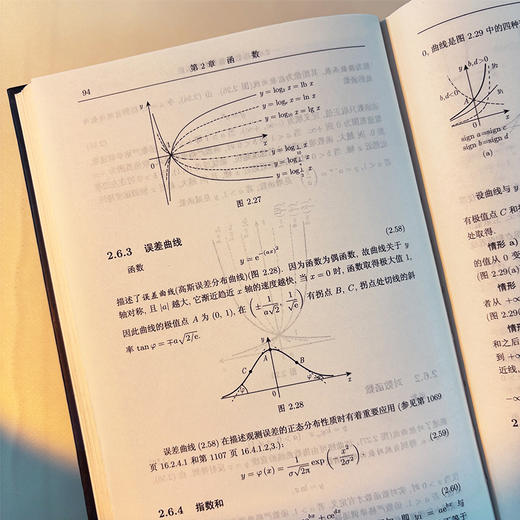 94
第 2 章 函 数
y
y = log₂ x = lb x
y = logₑ x = ln x
y = log₁₀ x = lg x
0
x
图 2.27
2.6.3 误差曲线
函数
y = e^{-(ax)²} (2.58)
描述了误差曲线(高斯误差分布曲线)(图 2.28). 因为函数为偶函数, 故曲线关于 y
轴对称, 且 |a| 越大, 它渐近趋近 x 轴的速度越快. 当 x = 0 时, 函数取得极大值 1,
因此曲线的极值点 A 为 (0, 1), 在 (± 1/(a√2), 1/√e) 有拐点 B, C, 拐点处切线的斜
率 tan φ = ∓a√(2/e).
y
A
C
B
φ
φ
0
x
图 2.28
误差曲线 (2.58) 在描述观测误差的正态分布性质时有着重要应用 (参见第 1069
页 16.2.4.1 和第 1107 页 16.4.1.2,3.):
y = φ(x) = 1/(σ√(2π)) exp(−x²/(2σ²)) (2.59)
2.6.4 指数和
(2.60)
0, 曲线是图 2.29 中的四种
y
b, d>0
b, d<0
y₂
0
sign a=sign c
sign b=sign d
(a)
设曲线与 y
有极值点 C 和
处取得.
情形 a)
的值从 0 变
(图 2.29(a)
情形
者从 +∞
(图 2.29(
情形
和之后
到 +∞
近线,